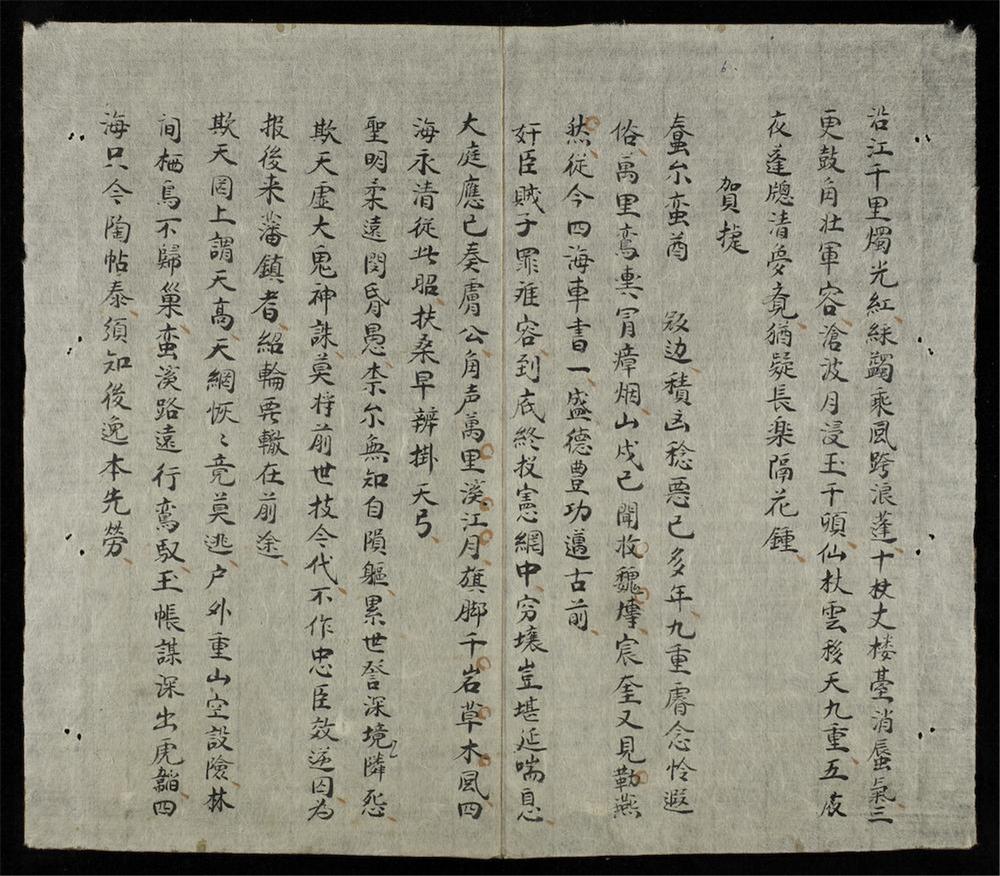 沿江千里燭光紅綵蠲乘風跨浪蓬十杖丈楼臺消蜃氣三
更鼓角壮軍容滄波月浸玉千頃仙杖雲移天九重五夜
夜蓬牕清夢竟猶疑長楽隔花鍾
賀捷
蠢尓蛮酋 敢边積凶稔悪已多年九重睿念怜遐
俗萬里鸾輿冒瘴烟山戍已聞收魏塼宸奎又見勒燕
然従今四海車書一盛德豊功邁古前
奸臣賊子罪难容到底終投憲網中穷壤豈堪延喘息
大庭應已奏膚公角声萬里溪江月旗脚千岩草木風四
海永清従此昭扶桑早辨掛天弓
聖明柔遠閔昏愚柰尔無知自隕軀累世詧深境隣怨
欺天虛大鬼神誅莫将前世技今代不作忠臣效逆囚为
报後来藩鎮者紹輪要轍在前途
欺天罔上謂天高天網恢〻竟莫逃户外重山空設險林
间栖鳥不歸巢蛮溪路遠行鸾馭玉帳謀深出虎韜四
海只今陶帖泰須知後逸本先勞